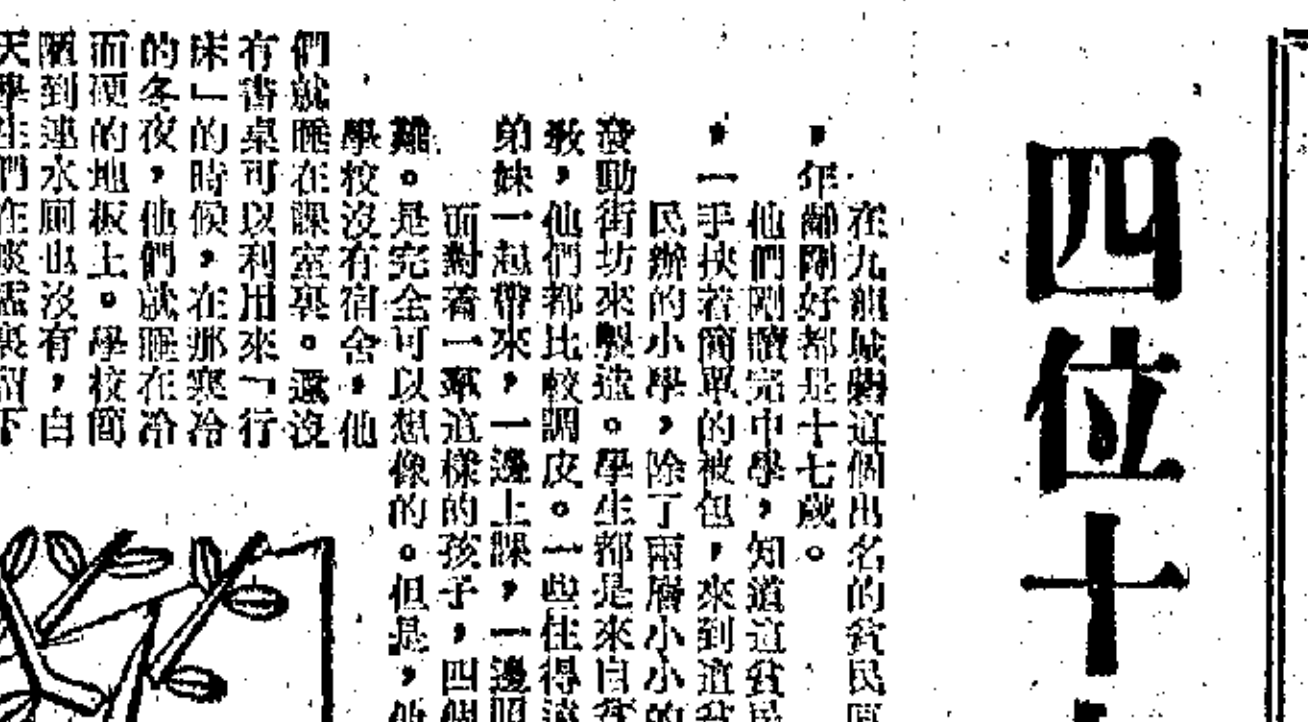 四位十
在九龍城砦這個出名的貧民區
，年齡剛好都是十七歲。
他們剛讀完中學，知道這貧民
，一手挾着簡單的被包，來到這貧
民辦的小學，除了兩層小小的
發動街坊來製造。學生都是來自貧
教，他們都比較調皮。一些住得遠
弟妹一起帶來，一邊上課，一邊照
面對着一羣這樣的孩子，四個
難。是完全可以想像的。但是，他
學校沒有宿舍，他
們就睡在課室裏。還沒
有書桌可以利用來「行
床」的時候，在那寒冷
的冬夜，他們就睡在冷
而硬的地板上。學校簡
陋到連水厠也沒有，白
天學生們在